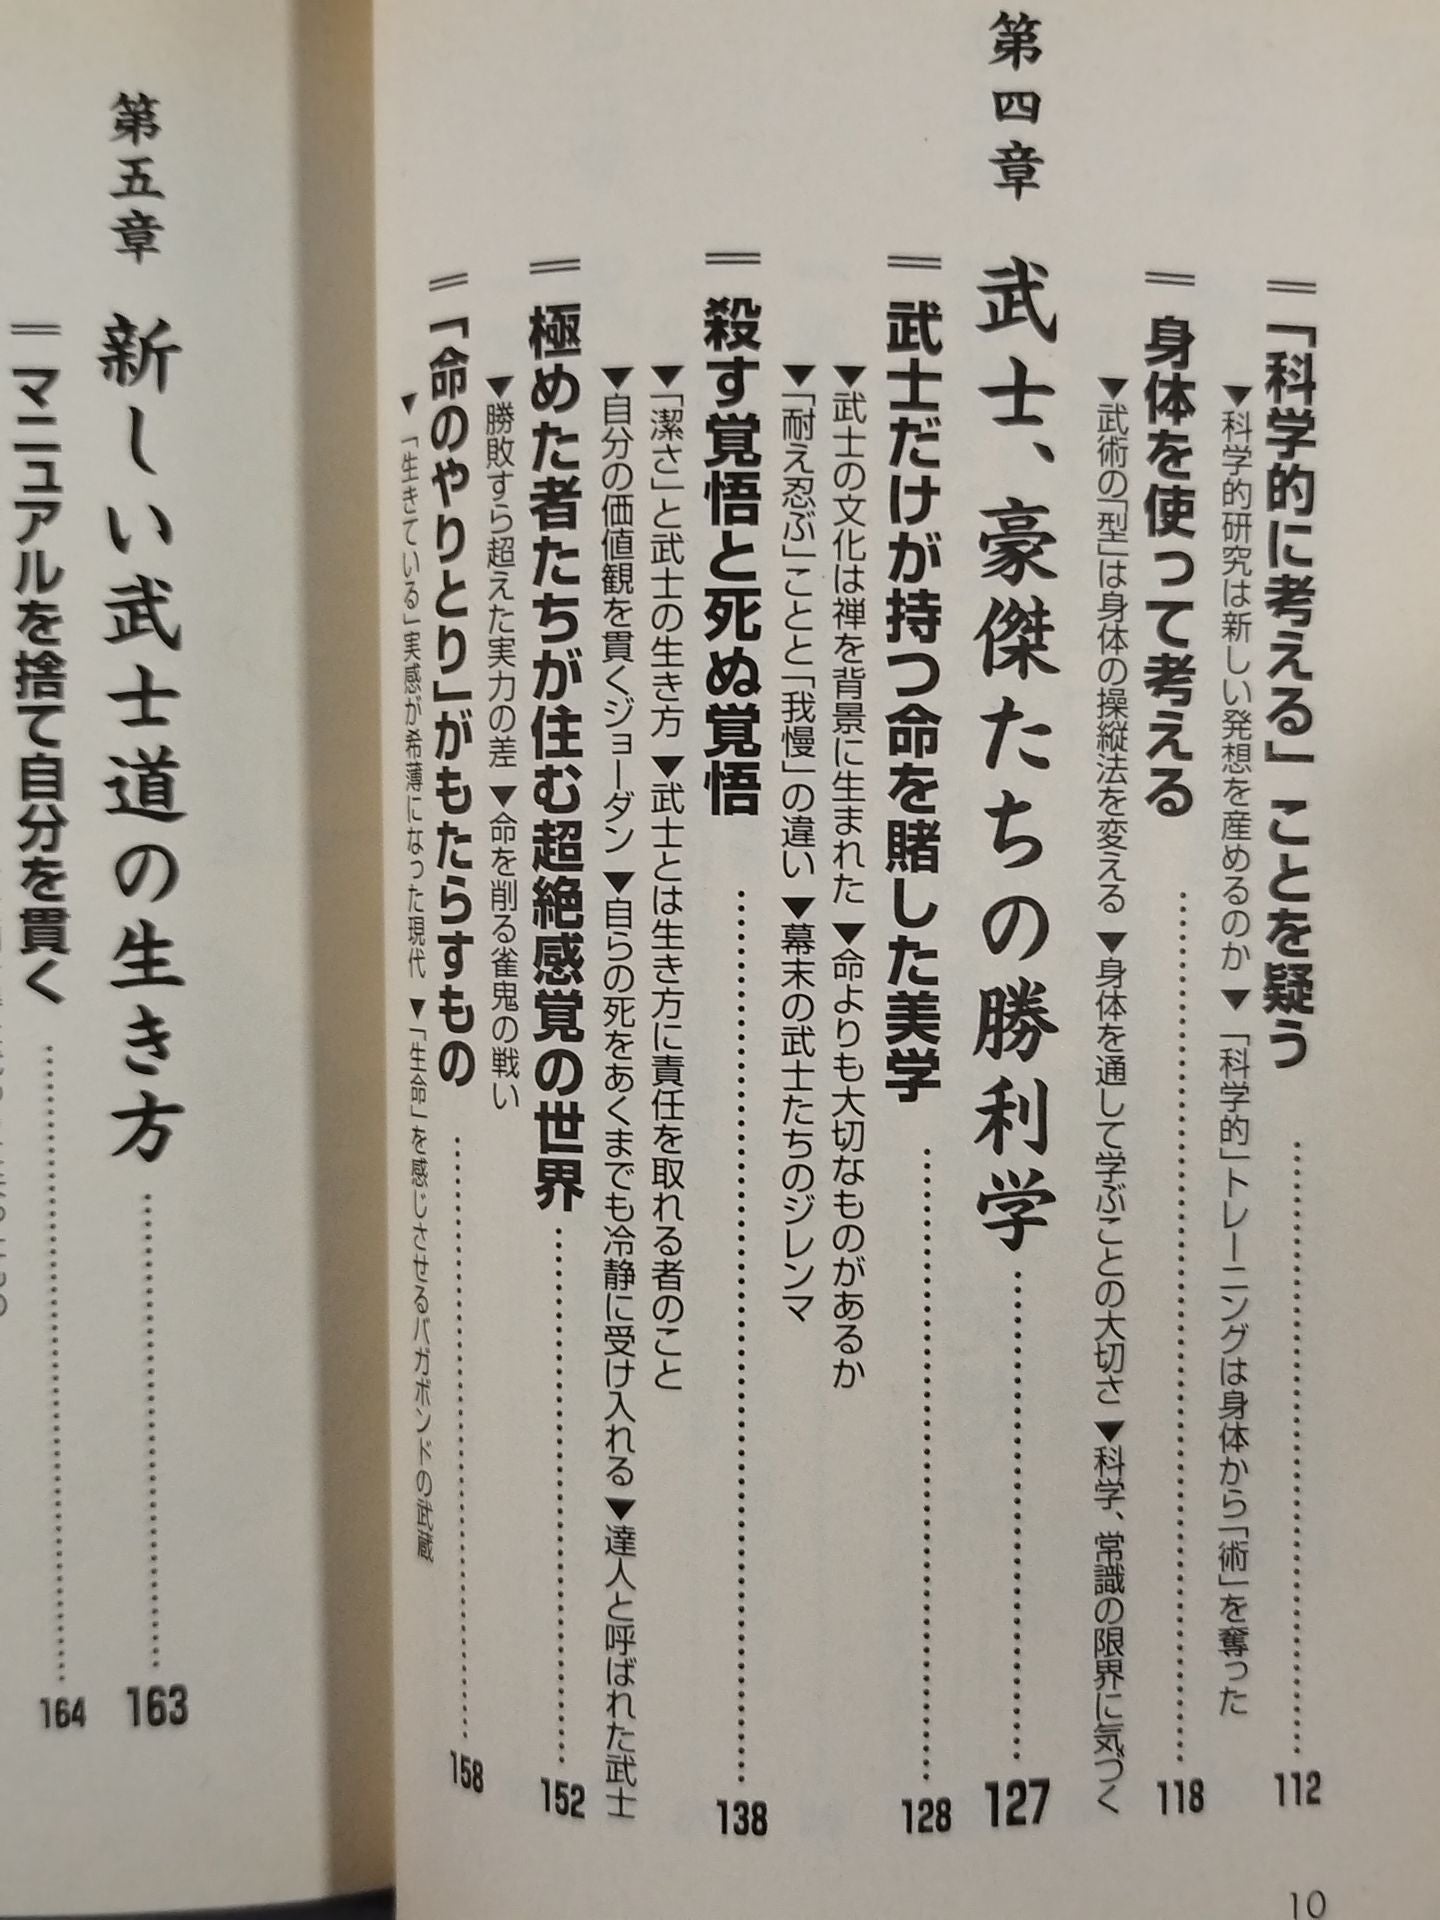 「科学的に考える」ことを疑う 112
▼科学的研究は新しい発想を産めるのか ▼「科学的」トレーニングは身体から「術」を奪った
身体を使って考える 118
▼武術の「型」は身体の操縦法を変える ▼身体を通して学ぶことの大切さ ▼科学、常識の限界に気づく
第四章 武士、豪傑たちの勝利学 127
武士だけが持つ命を賭した美学 128
▼武士の文化は禅を背景に生まれた ▼命よりも大切なものがあるか
▼「耐え忍ぶ」ことと「我慢」の違い ▼幕末の武士たちのジレンマ
殺す覚悟と死ぬ覚悟 138
▼「潔さ」と武士の生き方 ▼武士とは生き方に責任を取れる者のこと
▼自分の価値観を貫くジョーダン ▼自らの死をあくまでも冷静に受け入れる ▼達人と呼ばれた武士
極めた者たちが住む超絶感覚の世界 152
▼勝敗すら超えた実力の差 ▼命を削る雀鬼の戦い
「命のやりとり」がもたらすもの 158
▼「生きている」実感が希薄になった現代 ▼「生命」を感じさせるバガボンドの武蔵
10
第五章 新しい武士道の生き方 163
マニュアルを捨て自分を貫く 164